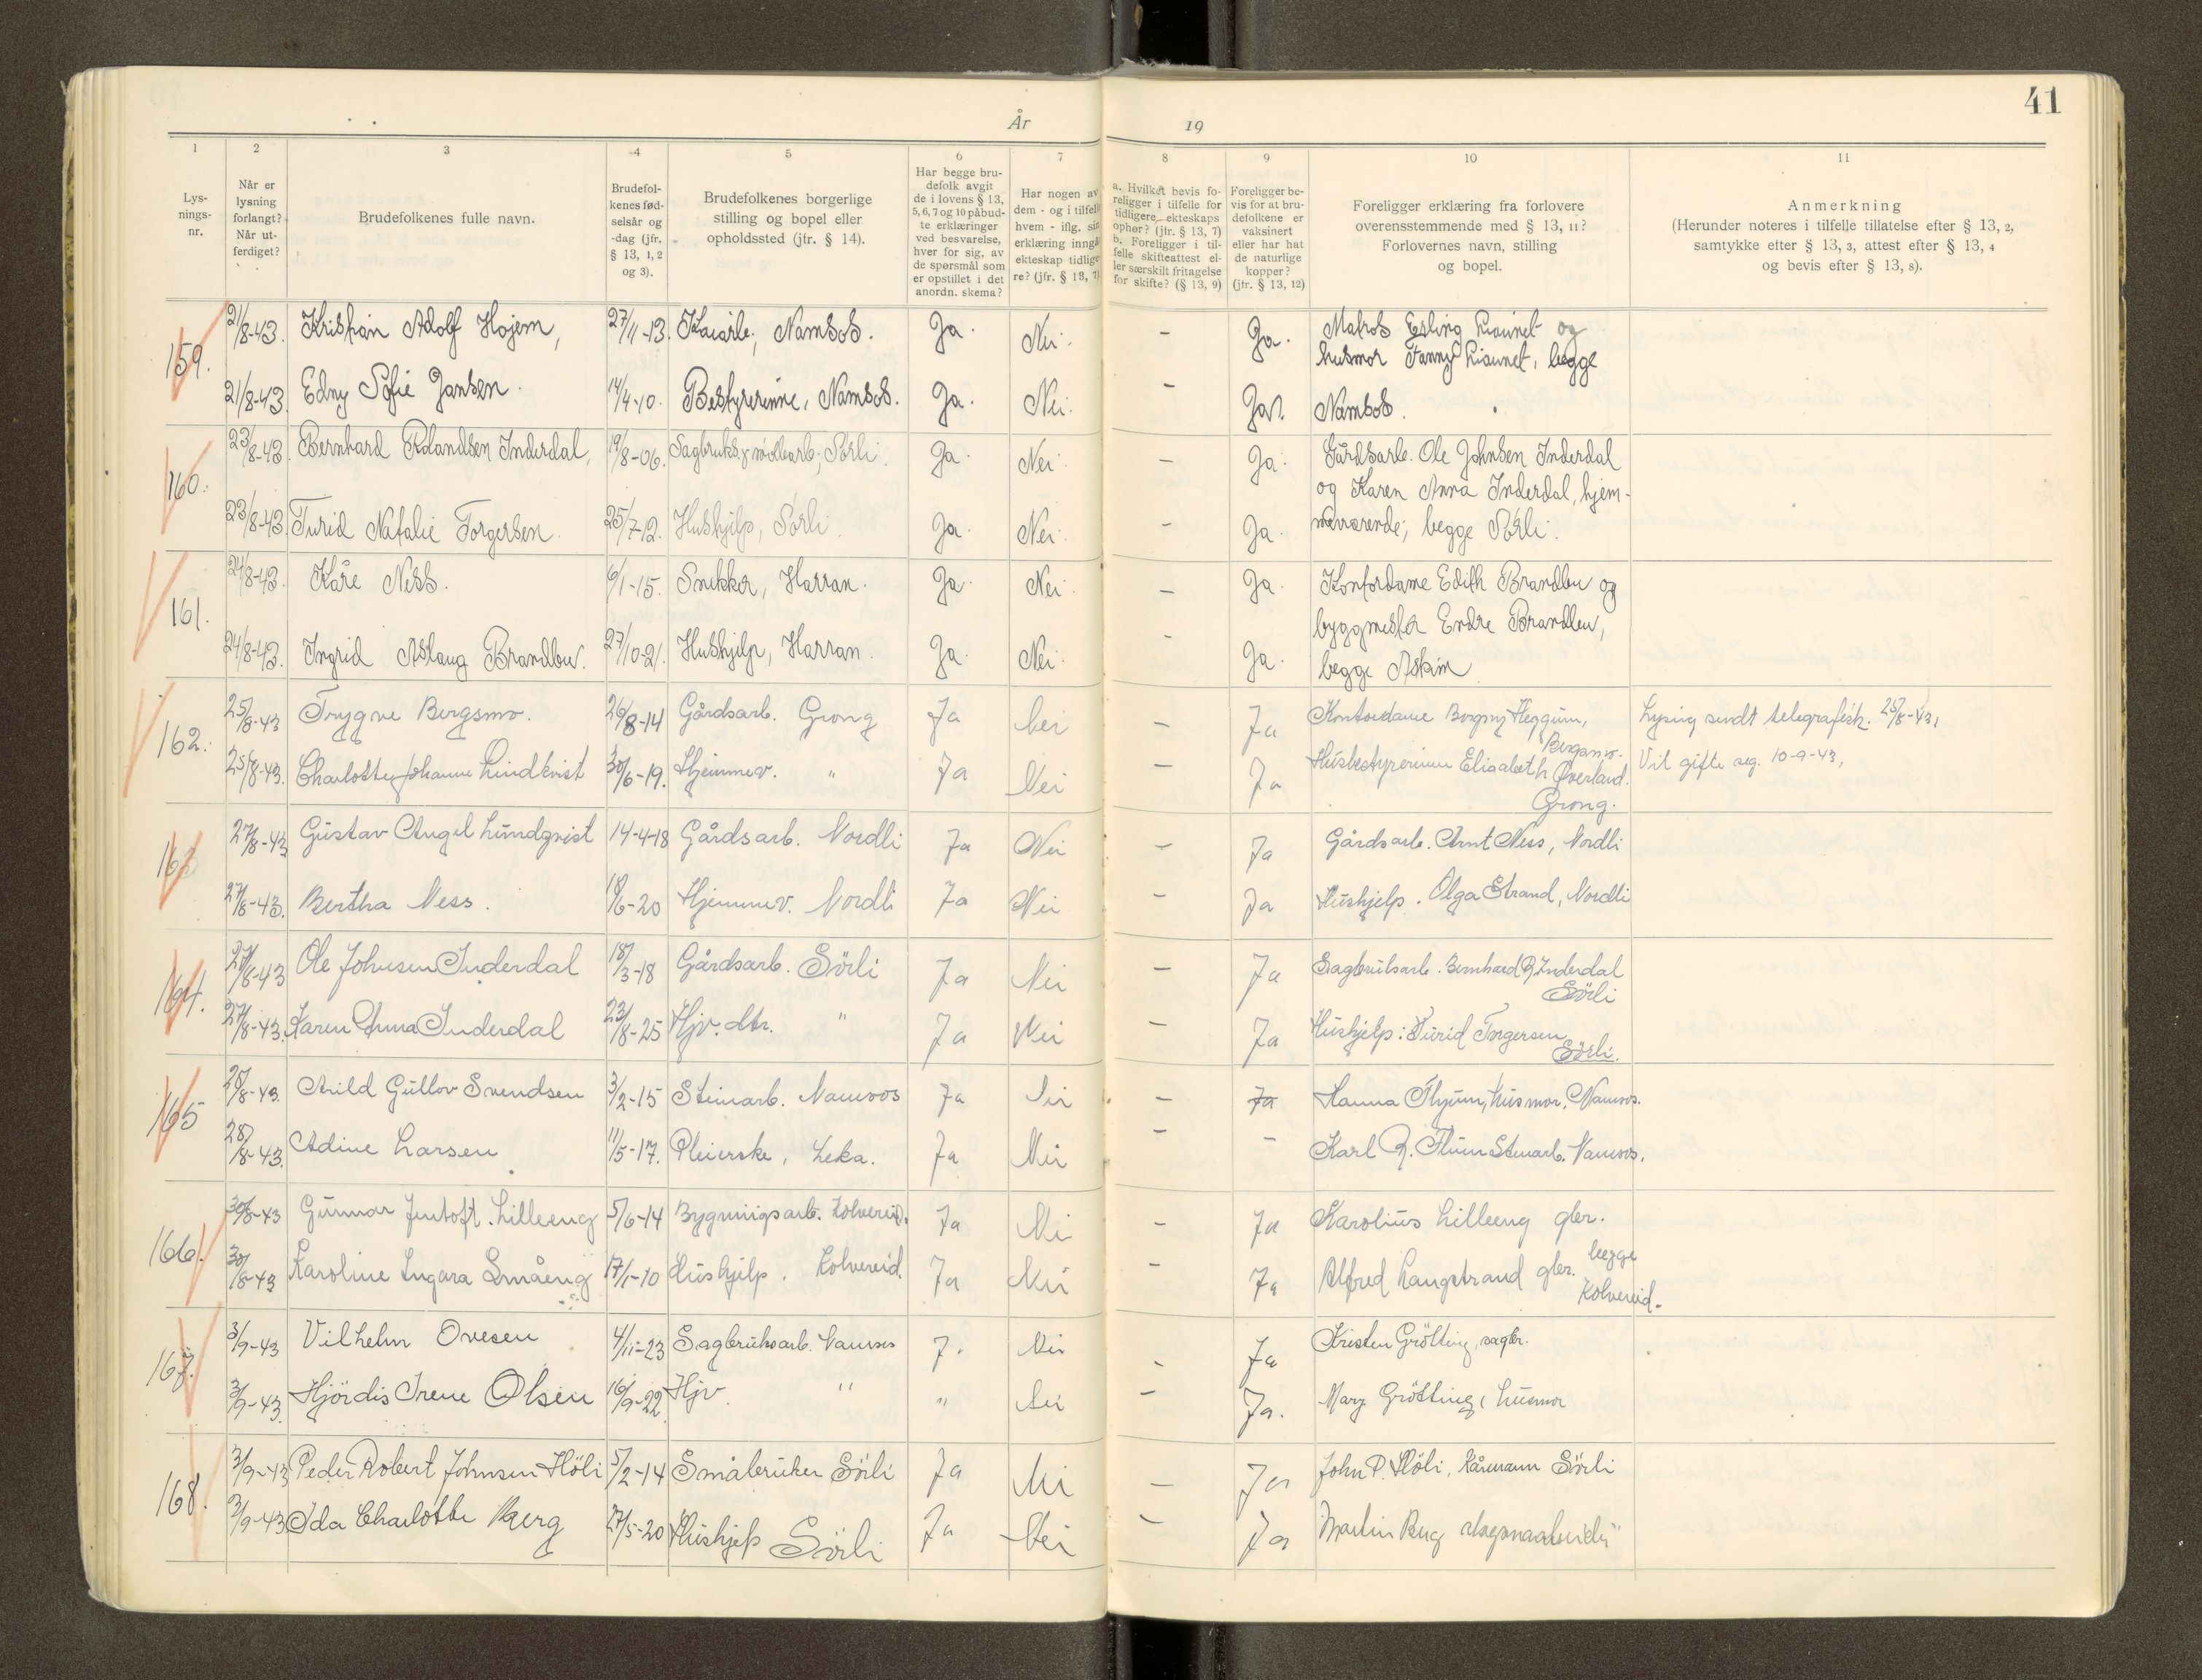 41
År 19
1 2 3 4 5 6 7 8 9 10 11
Lys-
nings-
nr.
Når er
lysning
forlangt?
Når ut-
ferdiget?
Brudefolkenes fulle navn.
Brudefol-
kenes fød-
selsår og
-dag (jfr.
§ 13, 1, 2
og 3).
Brudefolkenes borgerlige
stilling og bopel eller
opholdssted (jfr. § 14).
Har begge bru-
defolk avgit
de i lovens § 13,
5, 6, 7 og 10 påbud-
te erklæringer
ved besvarelse,
hver for sig, av
de spørsmål som
er opstillet i det
anordn. skema?
Har nogen av
dem - og i tilfelle
hvem - iflg. sin
erklæring inngå
ekteskap tidlige
re? (jfr. § 13, 7)
a. Hvilket bevis fo-
religger i tilfelle for
tidligere ekteskaps
ophør? (jfr. § 13, 7)
b. Foreligger i til-
felle skifteattest el-
ler særskilt fritagelse
for skifte? (§ 13, 9)
Foreligger be-
vis for at bru-
defolkene er
vaksinert
eller har hat
de naturlige
kopper?
(jfr. § 13, 12)
Foreligger erklæring fra forlovere
overensstemmende med § 13, 11?
Forlovernes navn, stilling
og bopel.
Anmerkning
(Herunder noteres i tilfelle tillatelse efter § 13, 2,
samtykke efter § 13, 3, attest efter § 13, 4
og bevis efter § 13, 8).
159. 21/8-43. Kristian Adolf Hojem, 27/11-13. Kaiarb., Namsos. Ja. Nei. – Ja. Matros Esling Liaunet og
husmor Fanny Liaunet, begge
21/8-43. Edny Sofie Jansen. 14/4-10. Bestyrerinne, Namsos. Ja. Nei. – Ja. Namsos.
160. 23/8-43. Bernhard Rolandsen Inderdal, 19/8-06. Sagbruks. & möllearb., Sörli. Ja. Nei. – Ja. Gårdsarb. Ole Johnsen Inderdal
og Karen Anna Inderdal, hjem-
23/8-43. Turid Natalie Torgersen. 25/7-12. Hushjelp, Sörli. Ja. Nei. – Ja. meværende, begge Sörli.
161. 24/8-43. Kåre Ness. 6/1-15. Snekker, Harran. Ja. Nei. – Ja. Kontordame Edith Brandbu og
byggmester Endre Brandbu,
24/8-43. Ingrid Aslaug Brandbu. 27/10-21. Hushjelp, Harran. Ja. Nei. – Ja. begge Askim
162. 25/8-43 Trygve Bergsmo. 26/8-14 Gårdsarb. Grong Ja Nei – Ja Kontordame Borgny Heggum, Lysing sendt telegrafisk. 25/8-43,
Bergsmo.
25/8-43. Charlotte Johanne Lindkvist 30/6-19. Hjemmev. " Ja Nei – Ja Husbestyrerinne Elisabeth Överland. Vil gifte seg. 10-9-43,
Grong.
163 27/8-43 Gustav Angel Lundqvist 14-4-18 Gårdsarb. Nordli Ja Nei – Ja Gårdsarb. Arnt Ness, Nordli
27/8-43. Bertha Ness. 18/6-20 Hjemmev. Nordli Ja Nei – Ja Hushjelp. Olga Strand, Nordli
164. 27/8-43 Ole Johnsen Inderdal 18/3-18 Gårdsarb. Sörli Ja Nei – Ja Sagbruksarb. Bernhard R. Inderdal
Sörli
27/8-43. Karen Anna Inderdal 23/8-25 Hjv. dtr. " Ja Nei – Ja Hushjelp: Turid Torgersen
Sörli.
165 28/8-43. Arild Gullov Svendsen 3/2-15 Steinarb. Namsos Ja Nei – Ja Hanna Flyum, husmor, Namsos.
28/8-43. Adine Larsen 11/5-17. Pleierske, Leka. Ja Nei – – Karl R. Flium Steinarb. Namsos.
166. 30/8-43 Gunnar Jentoft. Lilleeng 5/6-14 Bygningsarb. Kolvereid. Ja Nei – Ja Karolius Lilleeng gbr.
30/8-43 Karoline Ingara Småeng 17/1-10 Hushjelp. Kolvereid. Ja Nei – Ja Alfred Langstrand gbr. begge
Kolvereid.
167. 3/9-43 Vilhelm Ovesen 4/11-23 Sagbruksarb. Namsos J. Nei – Ja Kristen Grötting, sagbr.
3/9-43. Hjördis Irene Olsen 16/9-22 Hjv. " " Nei – Ja. Mary Grötting, husmor
168. 3/9-43 Peder Robert Johnsen Höli 5/2-14 Småbruker Sörli Ja Nei – Ja John P. Höli, kårmann Sörli
3/9-43 Oda Charlotte Berg 27/5-20 Hushjelp Sörli Ja Nei – Ja Martin Berg